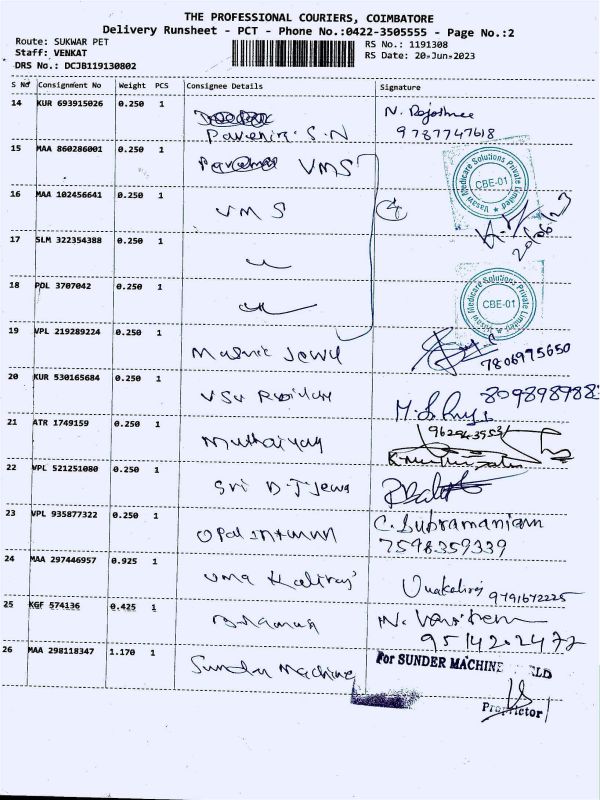 THE PROFESSIONAL COURIERS, COIMBATORE
Delivery Runsheet - PCT - Phone No.:0422-3505555 - Page No.:2
Route: SUKWAR PET
RS No.: 1191308
Staff: VENKAT
RS Date: 20-Jun-2023
DRS No.: DCJB119130802
S No Consignment No Weight PCS Consignee Details Signature
14 KUR 693915026 0.250 1 S.N N. 9787747618
15 MAA 860286001 0.250 1 VMS
Vasaw Medicare Solutions Private Limited ★ CBE-01
16 MAA 102456641 0.250 1 VMS 4 20/06/23
17 SLM 322354388 0.250 1
18 POL 3707042 0.250 1
Vasaw Medicare Solutions Private Limited ★ CBE-01
19 VPL 219289224 0.250 1 7806975650
20 KUR 530165684 0.250 1 809898988
21 ATR 1749159 0.250 1 Muthaiyan
22 VPL 521251080 0.250 1 Sri D.J Jewe
23 VPL 935877322 0.250 1 C. Subramaniam
7598359339
24 MAA 297446957 0.925 1 Uma Kaliraj Umakaliraj 9791672225
25 KGF 574136 0.425 1 9514202472
26 MAA 298118347 1.170 1 Sunder Machine For SUNDER MACHINE
Proprietor